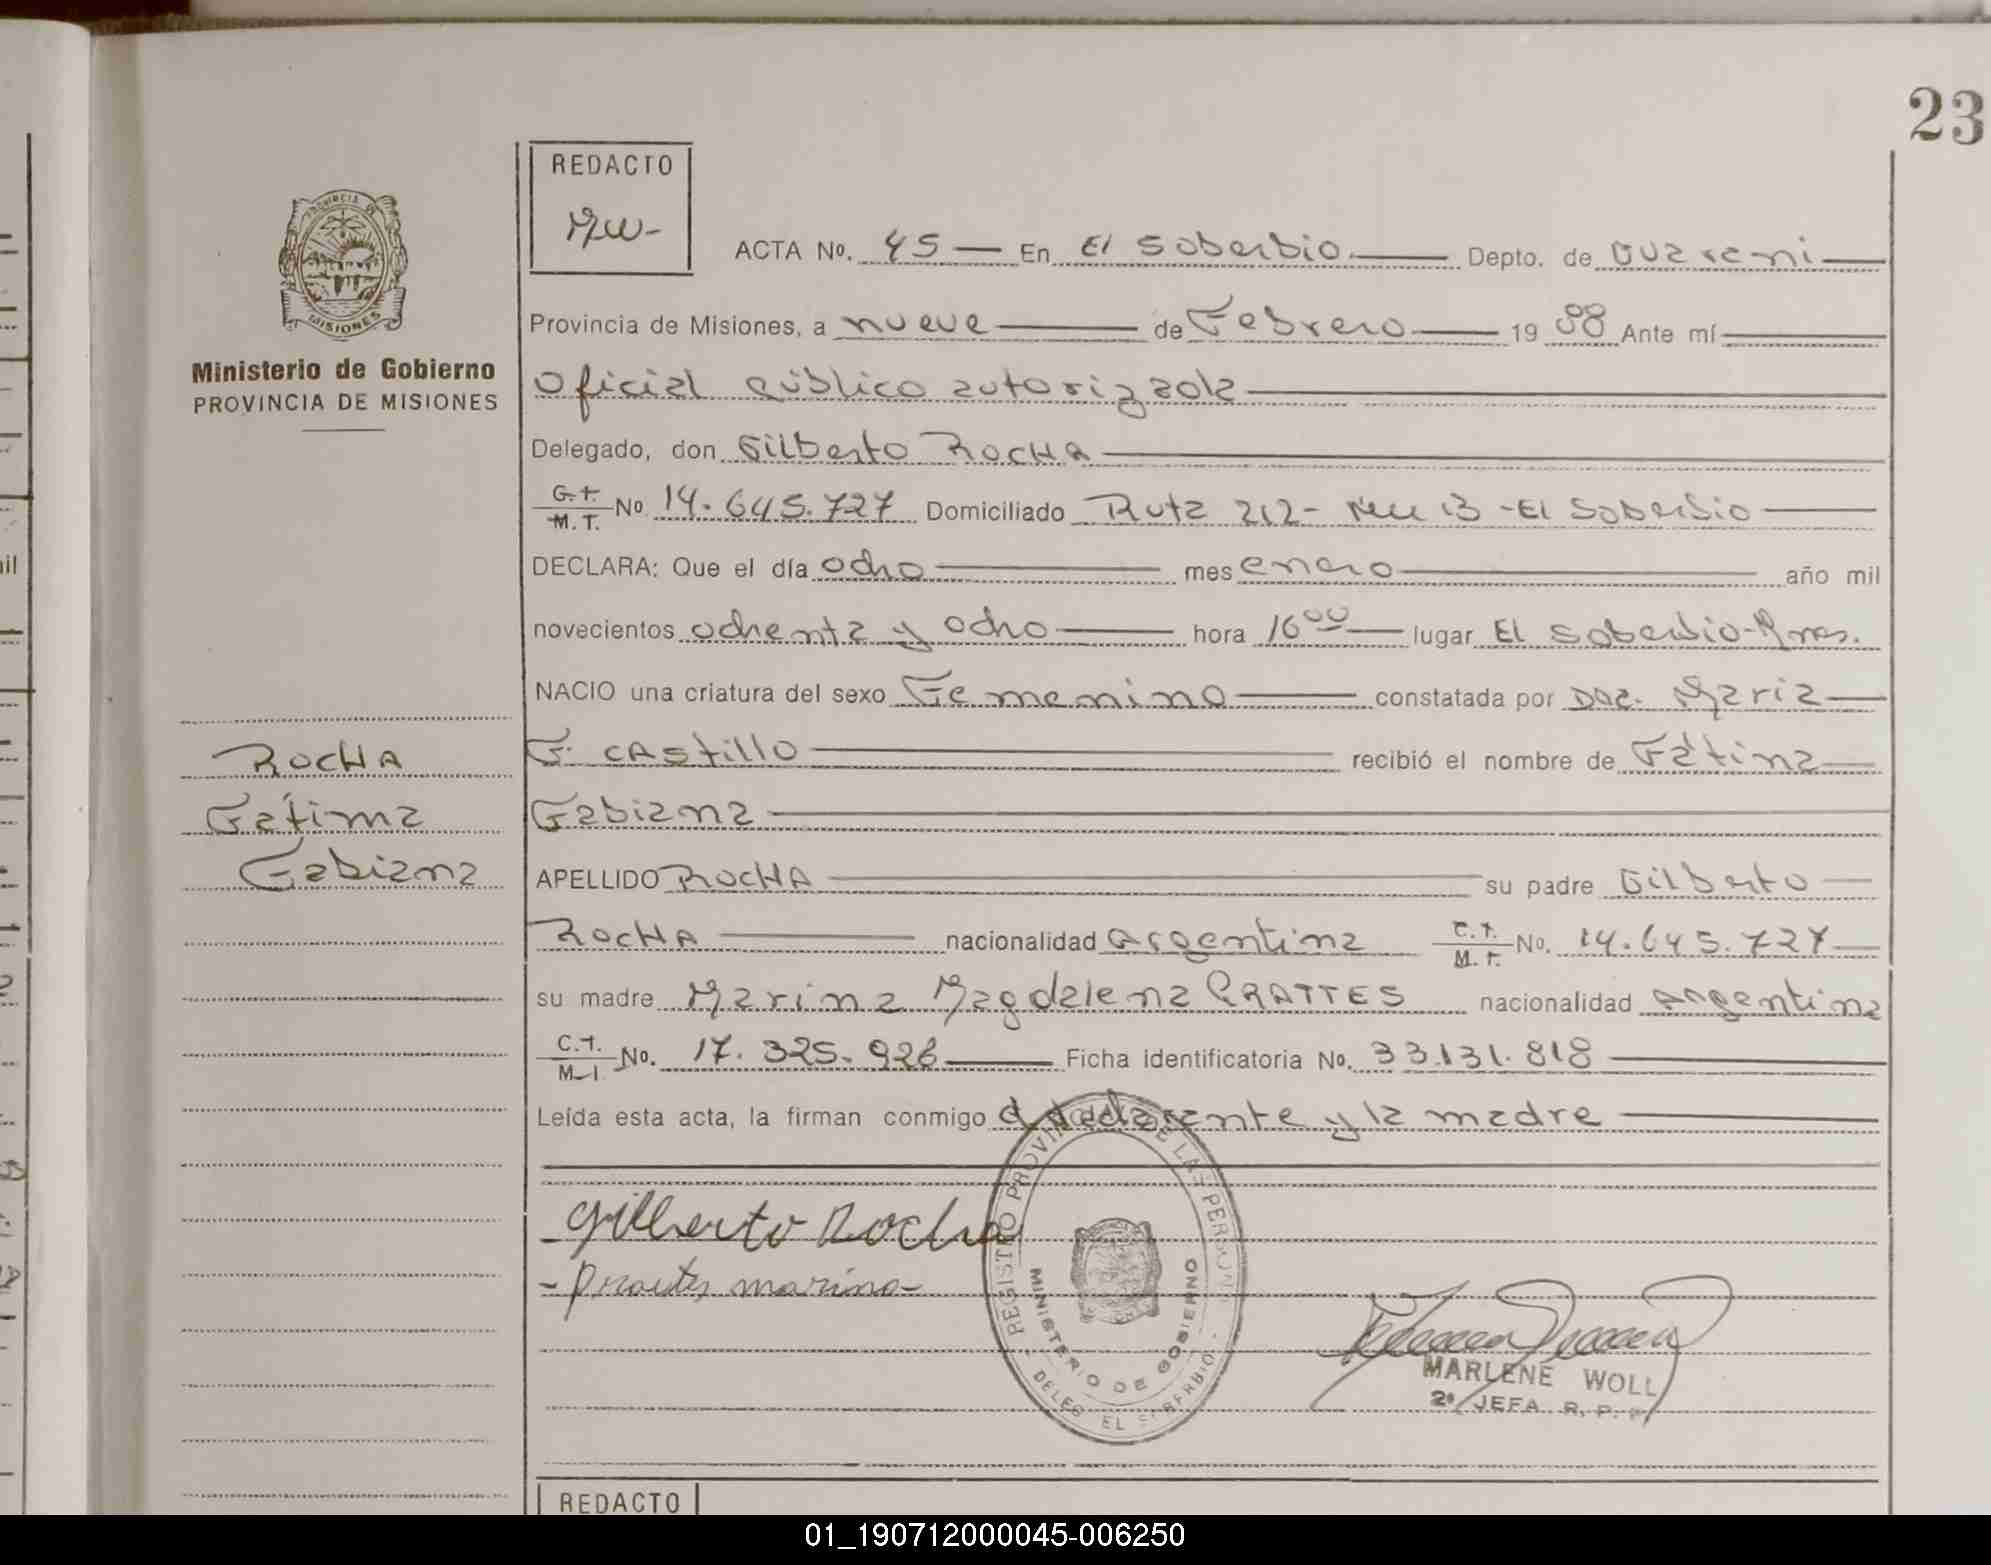 23
REDACTO
MW-
ACTA No. 45 — En El Soberbio — Depto. de Guarani —
PROVINCIA DE
MISIONES
Provincia de Misiones, a nueve — de Febrero — 19 88 Ante mí —
Ministerio de Gobierno
PROVINCIA DE MISIONES
Oficial público autorizada —
Delegado, don Gilberto Rocha —
C.I. M.I. No. 14.645.727 Domiciliado Ruta 212 - Km 13 - El Soberbio —
DECLARA: Que el día ocho — mes enero — año mil
novecientos ochenta y ocho — hora 16 00 — lugar El Soberbio - Mnes.
NACIO una criatura del sexo Femenino — constatada por Doc. Maria —
G. Castillo — recibió el nombre de Fátima —
Fabiana —
ROCHA
Fátima
Fabiana
APELLIDO ROCHA — su padre Gilberto —
ROCHA — nacionalidad argentina C.I. M.I. No. 14.645.727 —
su madre Marina Magdalena PRATTES nacionalidad argentina
C.I. M.I. No. 17.325.926 — Ficha identificatoria No. 33.131.818 —
Leída esta acta, la firman conmigo el declarante y la madre —
Gilberto Rocha
- Prattes marina -
REGISTRO PROVINCIAL DE LAS PERSONAS
MINISTERIO DE GOBIERNO
DELEG. EL SOBERBIO
MARLENE WOLL
2ª JEFA R. P. P.
REDACTO
01_190712000045-006250